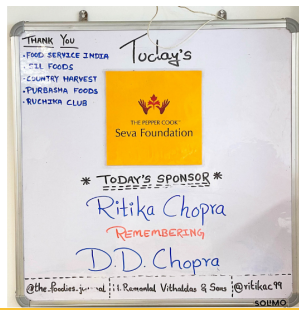 THANK YOU
• FOOD SERVICE INDIA
FOODS
COUNTRY HARVEST
• PURBASHA FOODS
• RUCHIKA CLUB
Today's
THE PEPPER COOK™
Seva Foundation
* TODAY'S SPONSOR *
Ritika Chopra
REMEMBERING
D.D. Chopra
Ramanlal Vithaldas & Sons
@ritikac99
SOLIMO